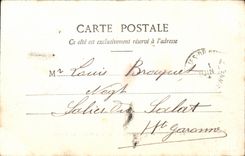 CARTE POSTALE
Ce côté est exclusivement réservé à l'adresse
Mr Louis Bouquet
Negt
Salies du Salat
Hte Garonne